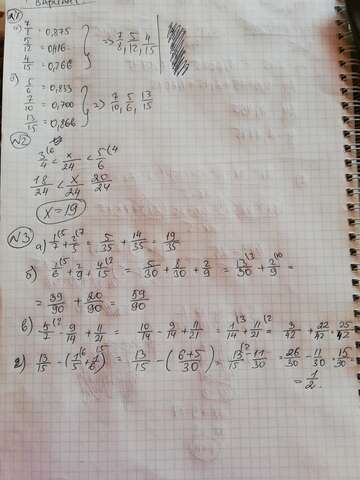 ВАРИАНТ
№1
а) 7/8 = 0,875
5/12 = 0,416
4/15 = 0,266
} => 7/8, 5/12, 4/15
б) 5/6 = 0,833
7/10 = 0,700
13/15 = 0,866
} => 7/10, 5/6, 13/15
№2
3/4 (6 < x/24 < 5/6 (4
18/24 < x/24 < 20/24
x = 19
№3
а) 1/7 (5 + 2/5 (7 = 5/35 + 14/35 = 19/35
б) 1/6 (5 + 2/9 + 4/15 (2 = 5/30 + 8/30 + 2/9 = 13/30 (3 + 2/9 (10 =
= 39/90 + 20/90 = 59/90
в) 5/7 (2 - 9/14 + 11/21 = 10/14 - 9/14 + 11/21 = 1/14 (3 + 11/21 (2 = 3/42 + 22/42 = 25/42
г) 13/15 - (1/5 (6 + 1/6 (5) = 13/15 - (6+5/30) = 13/15 (2 - 11/30 = 26/30 - 11/30 = 15/30 =
= 1/2.